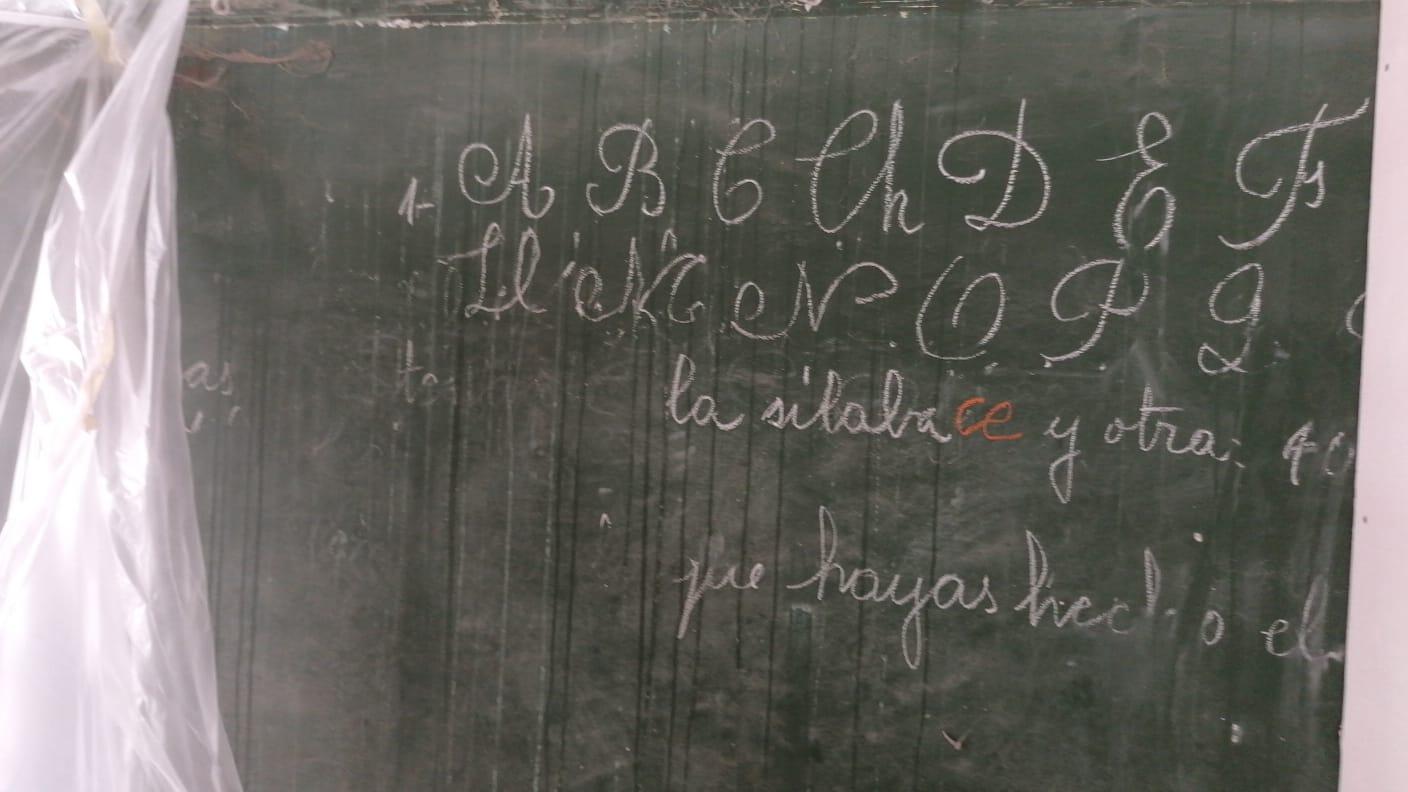 1- A B C Ch D E F
Ll M N O P Q
la sílaba ce y otra:
que hayas hecho el